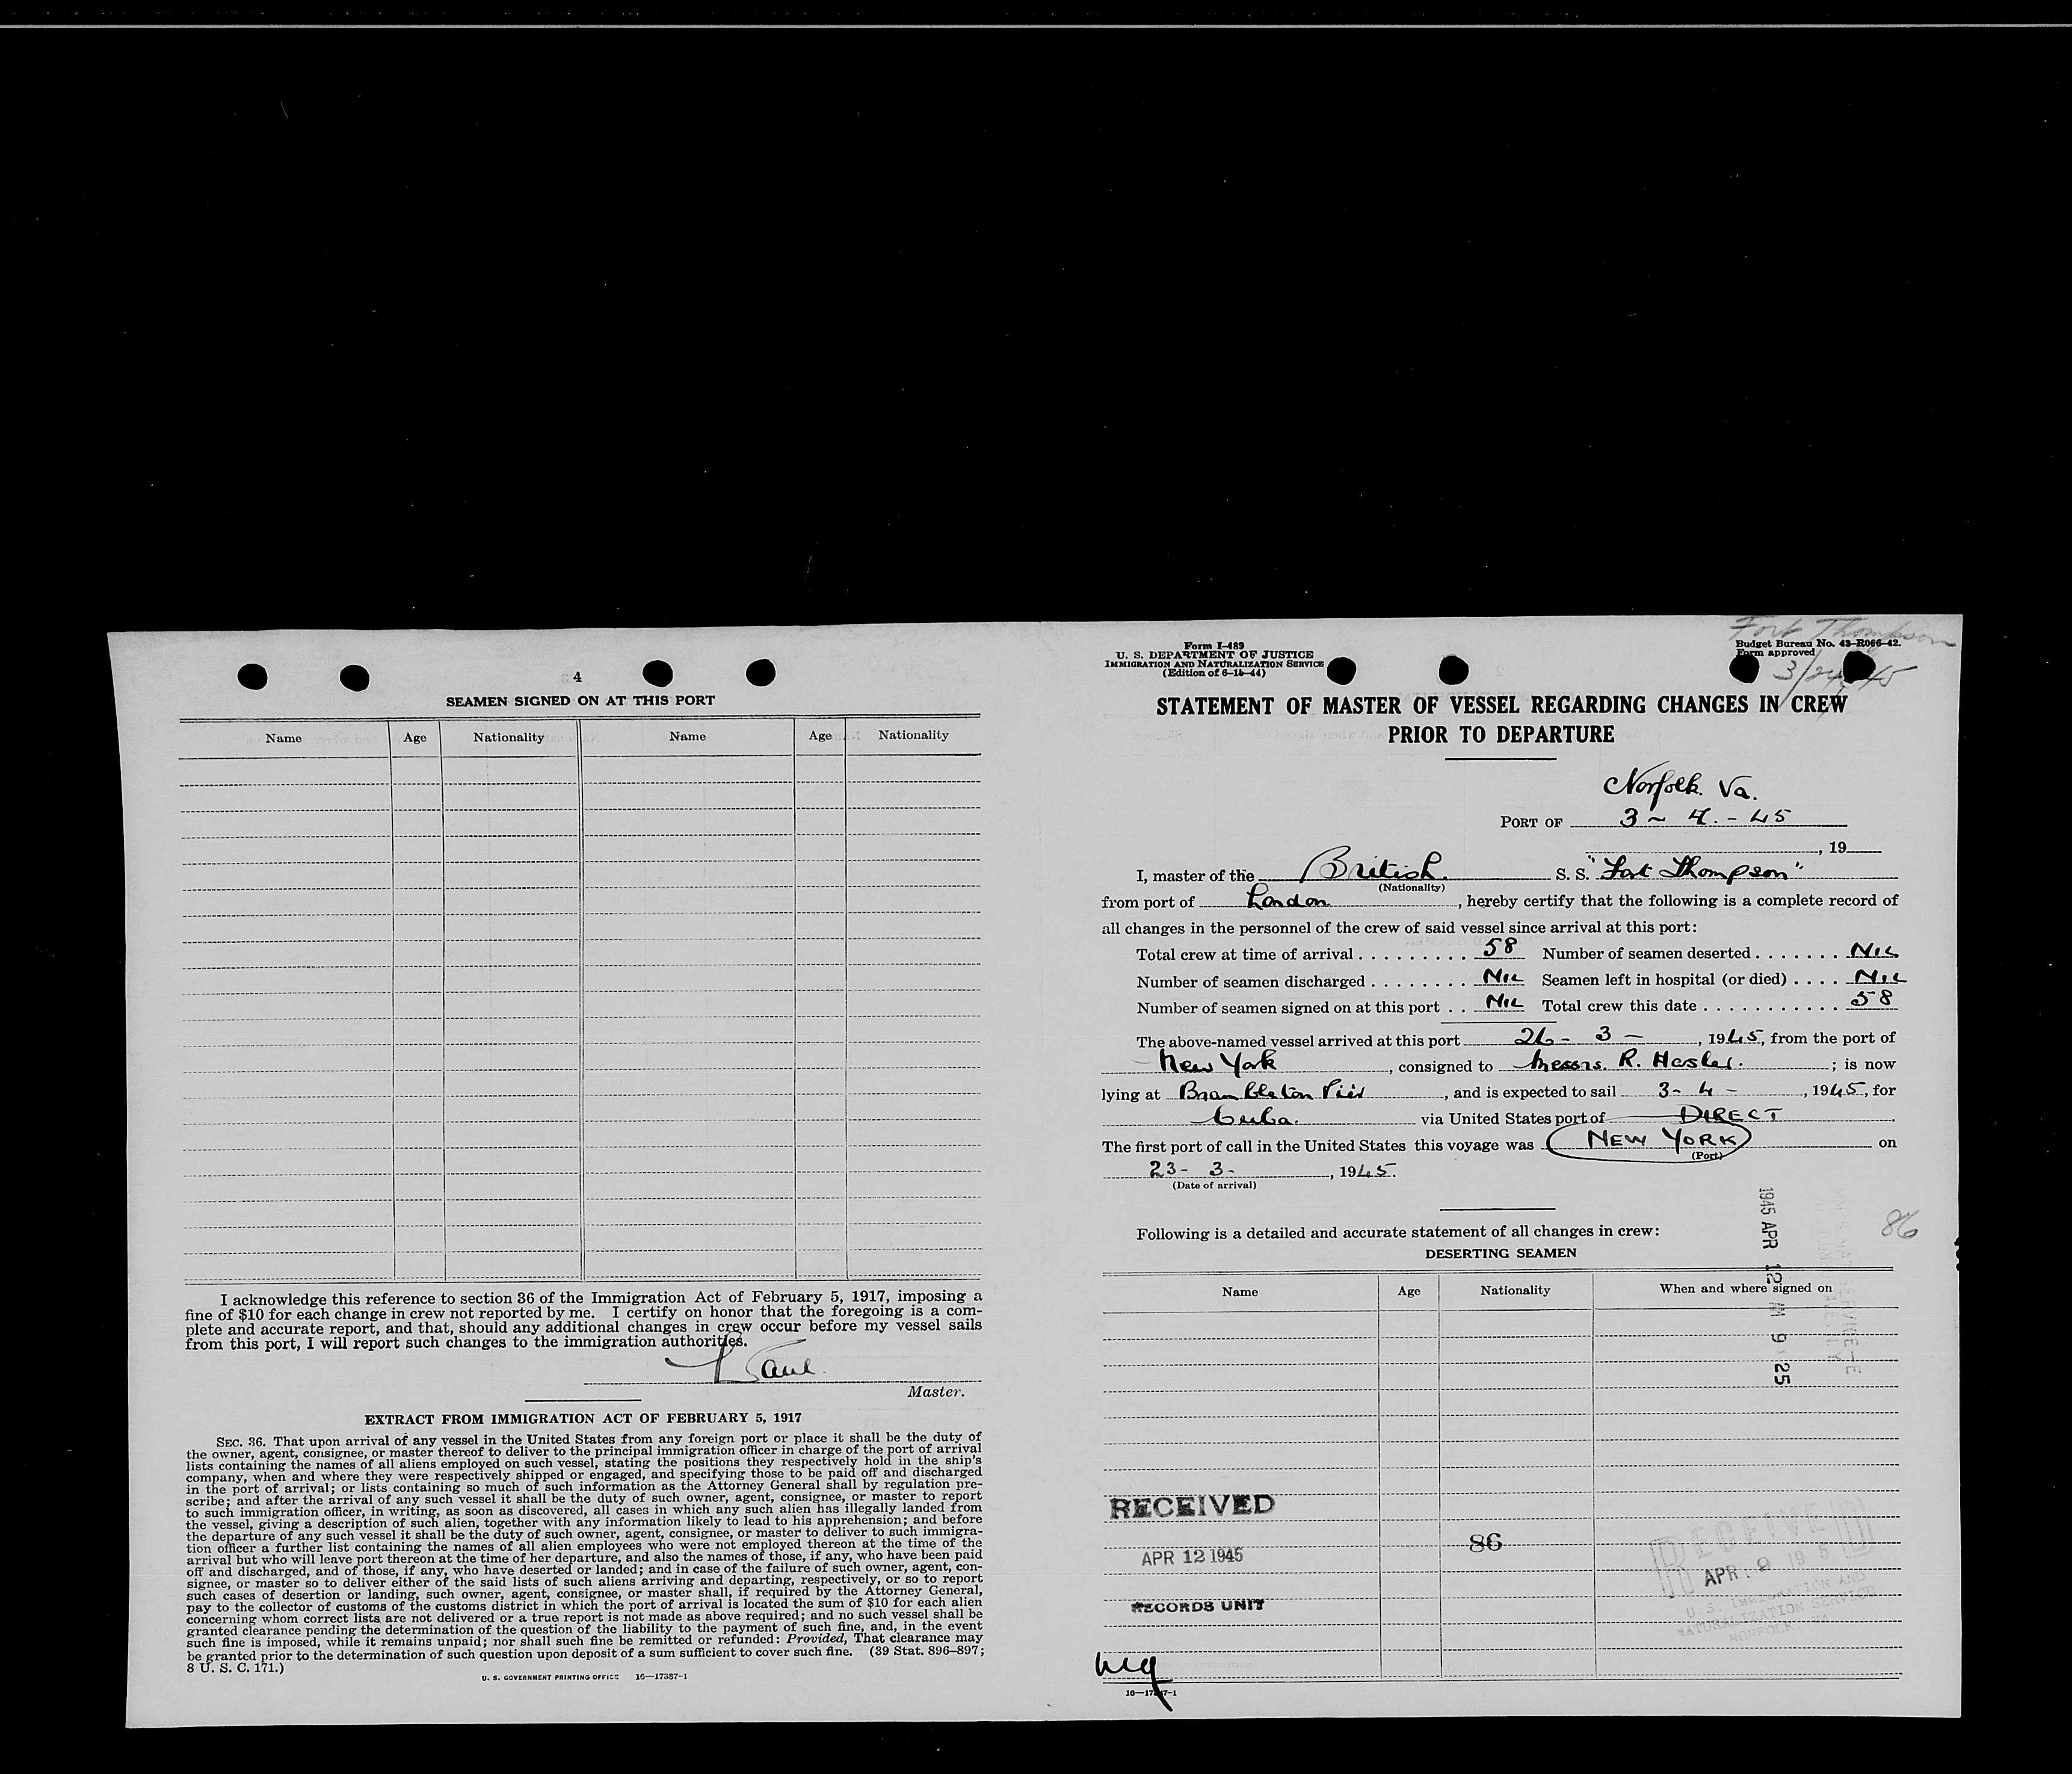 4
SEAMEN SIGNED ON AT THIS PORT
Name Age Nationality Name Age Nationality
I acknowledge this reference to section 36 of the Immigration Act of February 5, 1917, imposing a
fine of $10 for each change in crew not reported by me. I certify on honor that the foregoing is a com-
plete and accurate report, and that, should any additional changes in crew occur before my vessel sails
from this port, I will report such changes to the immigration authorities.
Master.
EXTRACT FROM IMMIGRATION ACT OF FEBRUARY 5, 1917
SEC. 36. That upon arrival of any vessel in the United States from any foreign port or place it shall be the duty of
the owner, agent, consignee, or master thereof to deliver to the principal immigration officer in charge of the port of arrival
lists containing the names of all aliens employed on such vessel, stating the positions they respectively hold in the ship's
company, when and where they were respectively shipped or engaged, and specifying those to be paid off and discharged
in the port of arrival; or lists containing so much of such information as the Attorney General shall by regulation pre-
scribe; and after the arrival of any such vessel it shall be the duty of such owner, agent, consignee, or master to report
to such immigration officer, in writing, as soon as discovered, all cases in which any such alien has illegally landed from
the vessel, giving a description of such alien, together with any information likely to lead to his apprehension; and before
the departure of any such vessel it shall be the duty of such owner, agent, consignee, or master to deliver to such immigra-
tion officer a further list containing the names of all alien employees who were not employed thereon at the time of the
arrival but who will leave port thereon at the time of her departure, and also the names of those, if any, who have been paid
off and discharged, and of those, if any, who have deserted or landed; and in case of the failure of such owner, agent, con-
signee, or master so to deliver either of the said lists of such aliens arriving and departing, respectively, or so to report
such cases of desertion or landing, such owner, agent, consignee, or master shall, if required by the Attorney General,
pay to the collector of customs of the customs district in which the port of arrival is located the sum of $10 for each alien
concerning whom correct lists are not delivered or a true report is not made as above required; and no such vessel shall be
granted clearance pending the determination of the question of the liability to the payment of such fine, and, in the event
such fine is imposed, while it remains unpaid; nor shall such fine be remitted or refunded: Provided, That clearance may
be granted prior to the determination of such question upon deposit of a sum sufficient to cover such fine. (39 Stat. 896–897;
8 U. S. C. 171.)
U. S. GOVERNMENT PRINTING OFFICE 16—17387-1
Form I-489
U. S. DEPARTMENT OF JUSTICE
IMMIGRATION AND NATURALIZATION SERVICE
(Edition of 6-15-44)
Fort Thompson
Budget Bureau No. 43-R066-42.
Form approved
3/24/45
STATEMENT OF MASTER OF VESSEL REGARDING CHANGES IN CREW
PRIOR TO DEPARTURE
Norfolk. Va.
PORT OF 3 - 4. - 45
, 19
I, master of the British. S. S. "Fort Thompson"
(Nationality)
from port of London , hereby certify that the following is a complete record of
all changes in the personnel of the crew of said vessel since arrival at this port:
Total crew at time of arrival . . . . . . . . . 58 Number of seamen deserted . . . . . . . NIL
Number of seamen discharged . . . . . . . . NIL Seamen left in hospital (or died) . . . . NIL
Number of seamen signed on at this port . . NIL Total crew this date . . . . . . . . . . . 58
The above-named vessel arrived at this port 26 - 3 - , 1945, from the port of
New York , consigned to Messrs. R. Hasler. ; is now
lying at Brambleton Pier , and is expected to sail 3 - 4 - , 1945, for
Cuba. via United States port of DIRECT
The first port of call in the United States this voyage was NEW YORK on
(Port)
23 - 3 - , 1945.
(Date of arrival)
1945 APR 12 AM 9 25
86
Following is a detailed and accurate statement of all changes in crew:
DESERTING SEAMEN
Name Age Nationality When and where signed on
RECEIVED
APR 12 1945
RECORDS UNIT
86
RECEIVED
APR 9 1945
U. S. IMMIGRATION AND
NATURALIZATION SERVICE
NORFOLK, VA.
16—17387-1